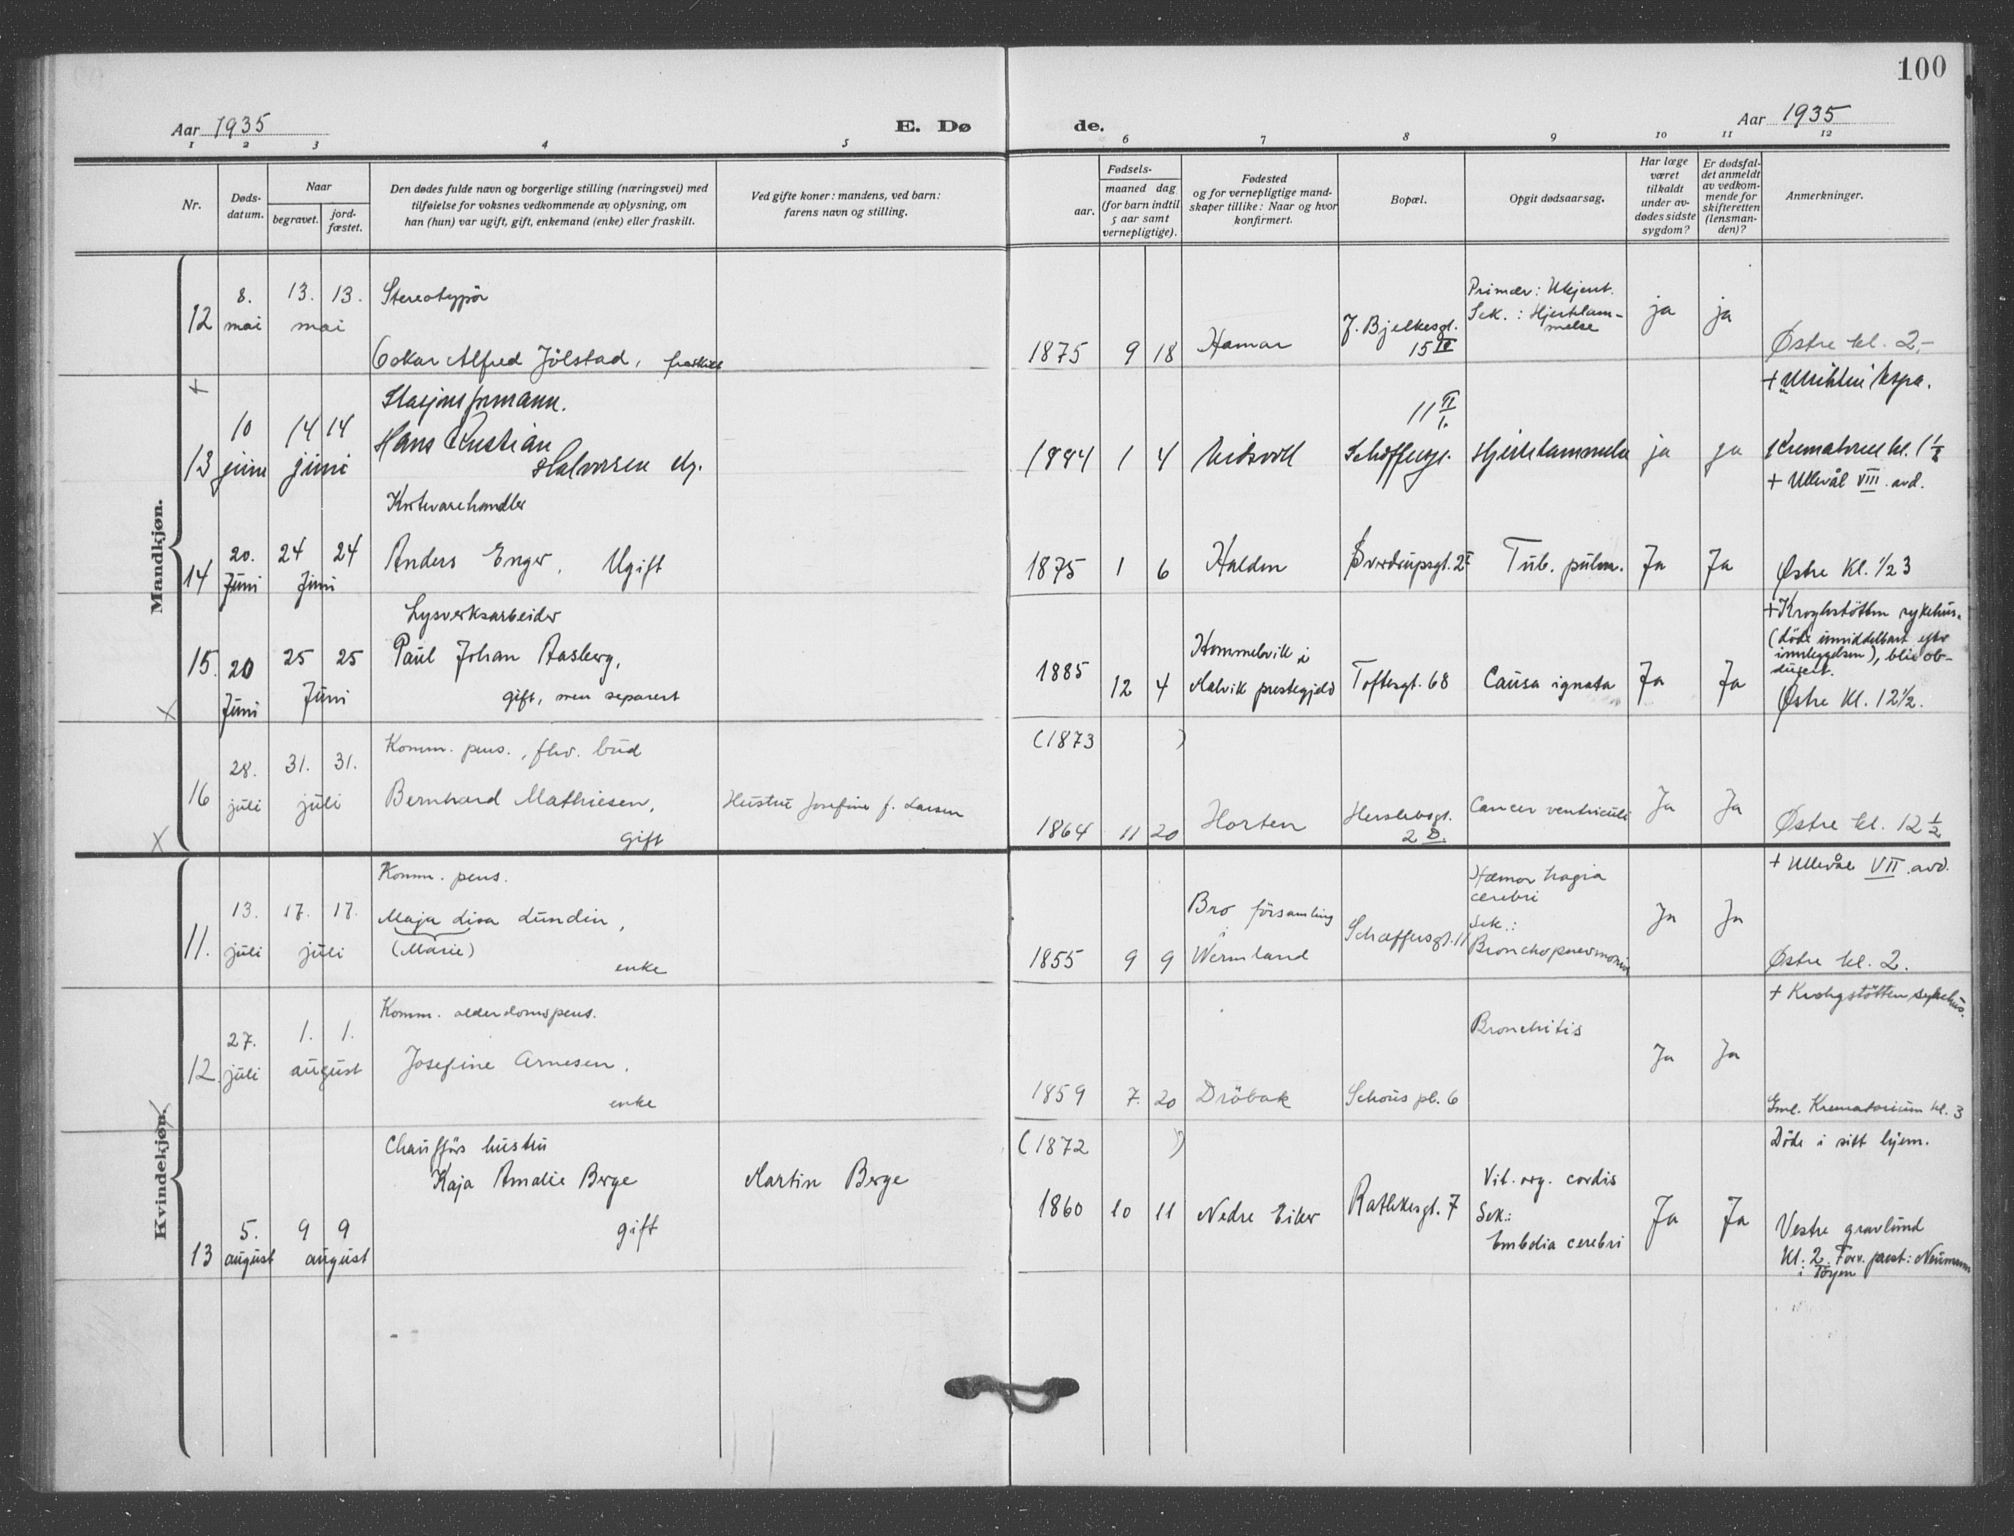 100
Aar 1935
E. Dø
de.
Aar 1935
1 2 3 4 5 6 7 8 9 10 11 12
Nr.
Døds-
datum.
Naar
begravet.
jord-
fæstet.
Den dødes fulde navn og borgerlige stilling (næringsvei) med
tilføielse for voksnes vedkommende av oplysning, om
han (hun) var ugift, gift, enkemand (enke) eller fraskilt.
Ved gifte koner: mandens, ved barn:
farens navn og stilling.
Fødsels-
aar.
maaned dag
(for barn indtil
5 aar samt
vernepligtige).
Fødested
og for vernepligtige mand-
skaper tillike: Naar og hvor
konfirmert.
Bopæl.
Opgit dødsaarsag.
Har læge
været
tilkaldt
under av-
dødes sidste
sygdom?
Er dødsfal-
det anmeldt
av vedkom-
mende for
skifteretten
(lensman-
den)?
Anmerkninger.
Mandkjøn.
12
8.
mai
13. 13.
mai
Stereotypör
Oskar Alfred Jölstad, fraskilt
1875 9 18
Hamar
J. Bjelkesgt.
15 IV
Primær: Ukjent.
Sek.: Hjertelam-
melse
ja
ja
Østre kl. 2.-
13
10
juni
14 14
juni
Stasjonsformann.
Hans Kristian
Halvorsen
1884 1 4
Eidsvoll
11 II
Schæffersgt.
Hjertelammelse
ja
ja
Krematoriet kl. 1 1/2
14
20.
Juni
24 24
Juni
Kortevarehandler
Anders Enger, Ugift
1875 1 6
Halden
Sverdrupsgt. 2 I
Tub. pulm.
Ja
Ja
+ Ullevål VIII avd.
Østre Kl. 1/2 3
15.
20
Juni
25 25
Juni
Lysverksarbeider
Paul Johan Aasberg,
gift, men separert
1885 12 4
Hommelvik i
Malvik prestegjeld
Toftesgt. 68
Causa ignota
Ja
Ja
+ Kroghstötten sykehus.
(döde umiddelbart efter
innleggelsen), blir ob-
dusert.
Østre Kl. 12 1/2.
16
28.
juli
31. 31.
juli
Komm. pens., fhv. bud
Bernhard Mathiesen,
gift
Hustru Josefine f. Larsen
(1873 )
1864 11 20
Horten
Herslebsgt.
2 B.
Cancer ventriculi
Ja
Ja
Østre kl. 12 1/2
Kvindekjøn.
11.
13.
juli
17. 17.
juli
Komm. pens.
Maja Lisa Lundin,
(Marie)
enke
1855 9 9
Bro församling
i
Wermland
Schæffersgt. 11
Hæmorrhagia
cerebri
Sek.:
Bronchopneumonia
Ja
Ja
+ Ullevål VII avd.
Østre kl. 2.
12.
27.
juli
1. 1.
august
Komm. alderdomspens.
Josefine Arnesen,
enke
1859 7. 20
Dröbak
Schous pl. 6
Bronchitis
Ja
Ja
+ Krohgstötten sykehus.
Gml. Krematorium kl. 3
13
5.
august
9 9
august
Chaufförs hustru
Kaja Amalie Berge
gift
Martin Berge
(1872 )
1860 10 11
Nedre Eiker
Rathkesgt. 7
Vit. org. cordis
Sek.:
Embolia cerebri
Ja
Ja
Döde i sitt hjem.
Vestre gravlund
Kl. 2. Forr. prest: Neumann
i Töyen